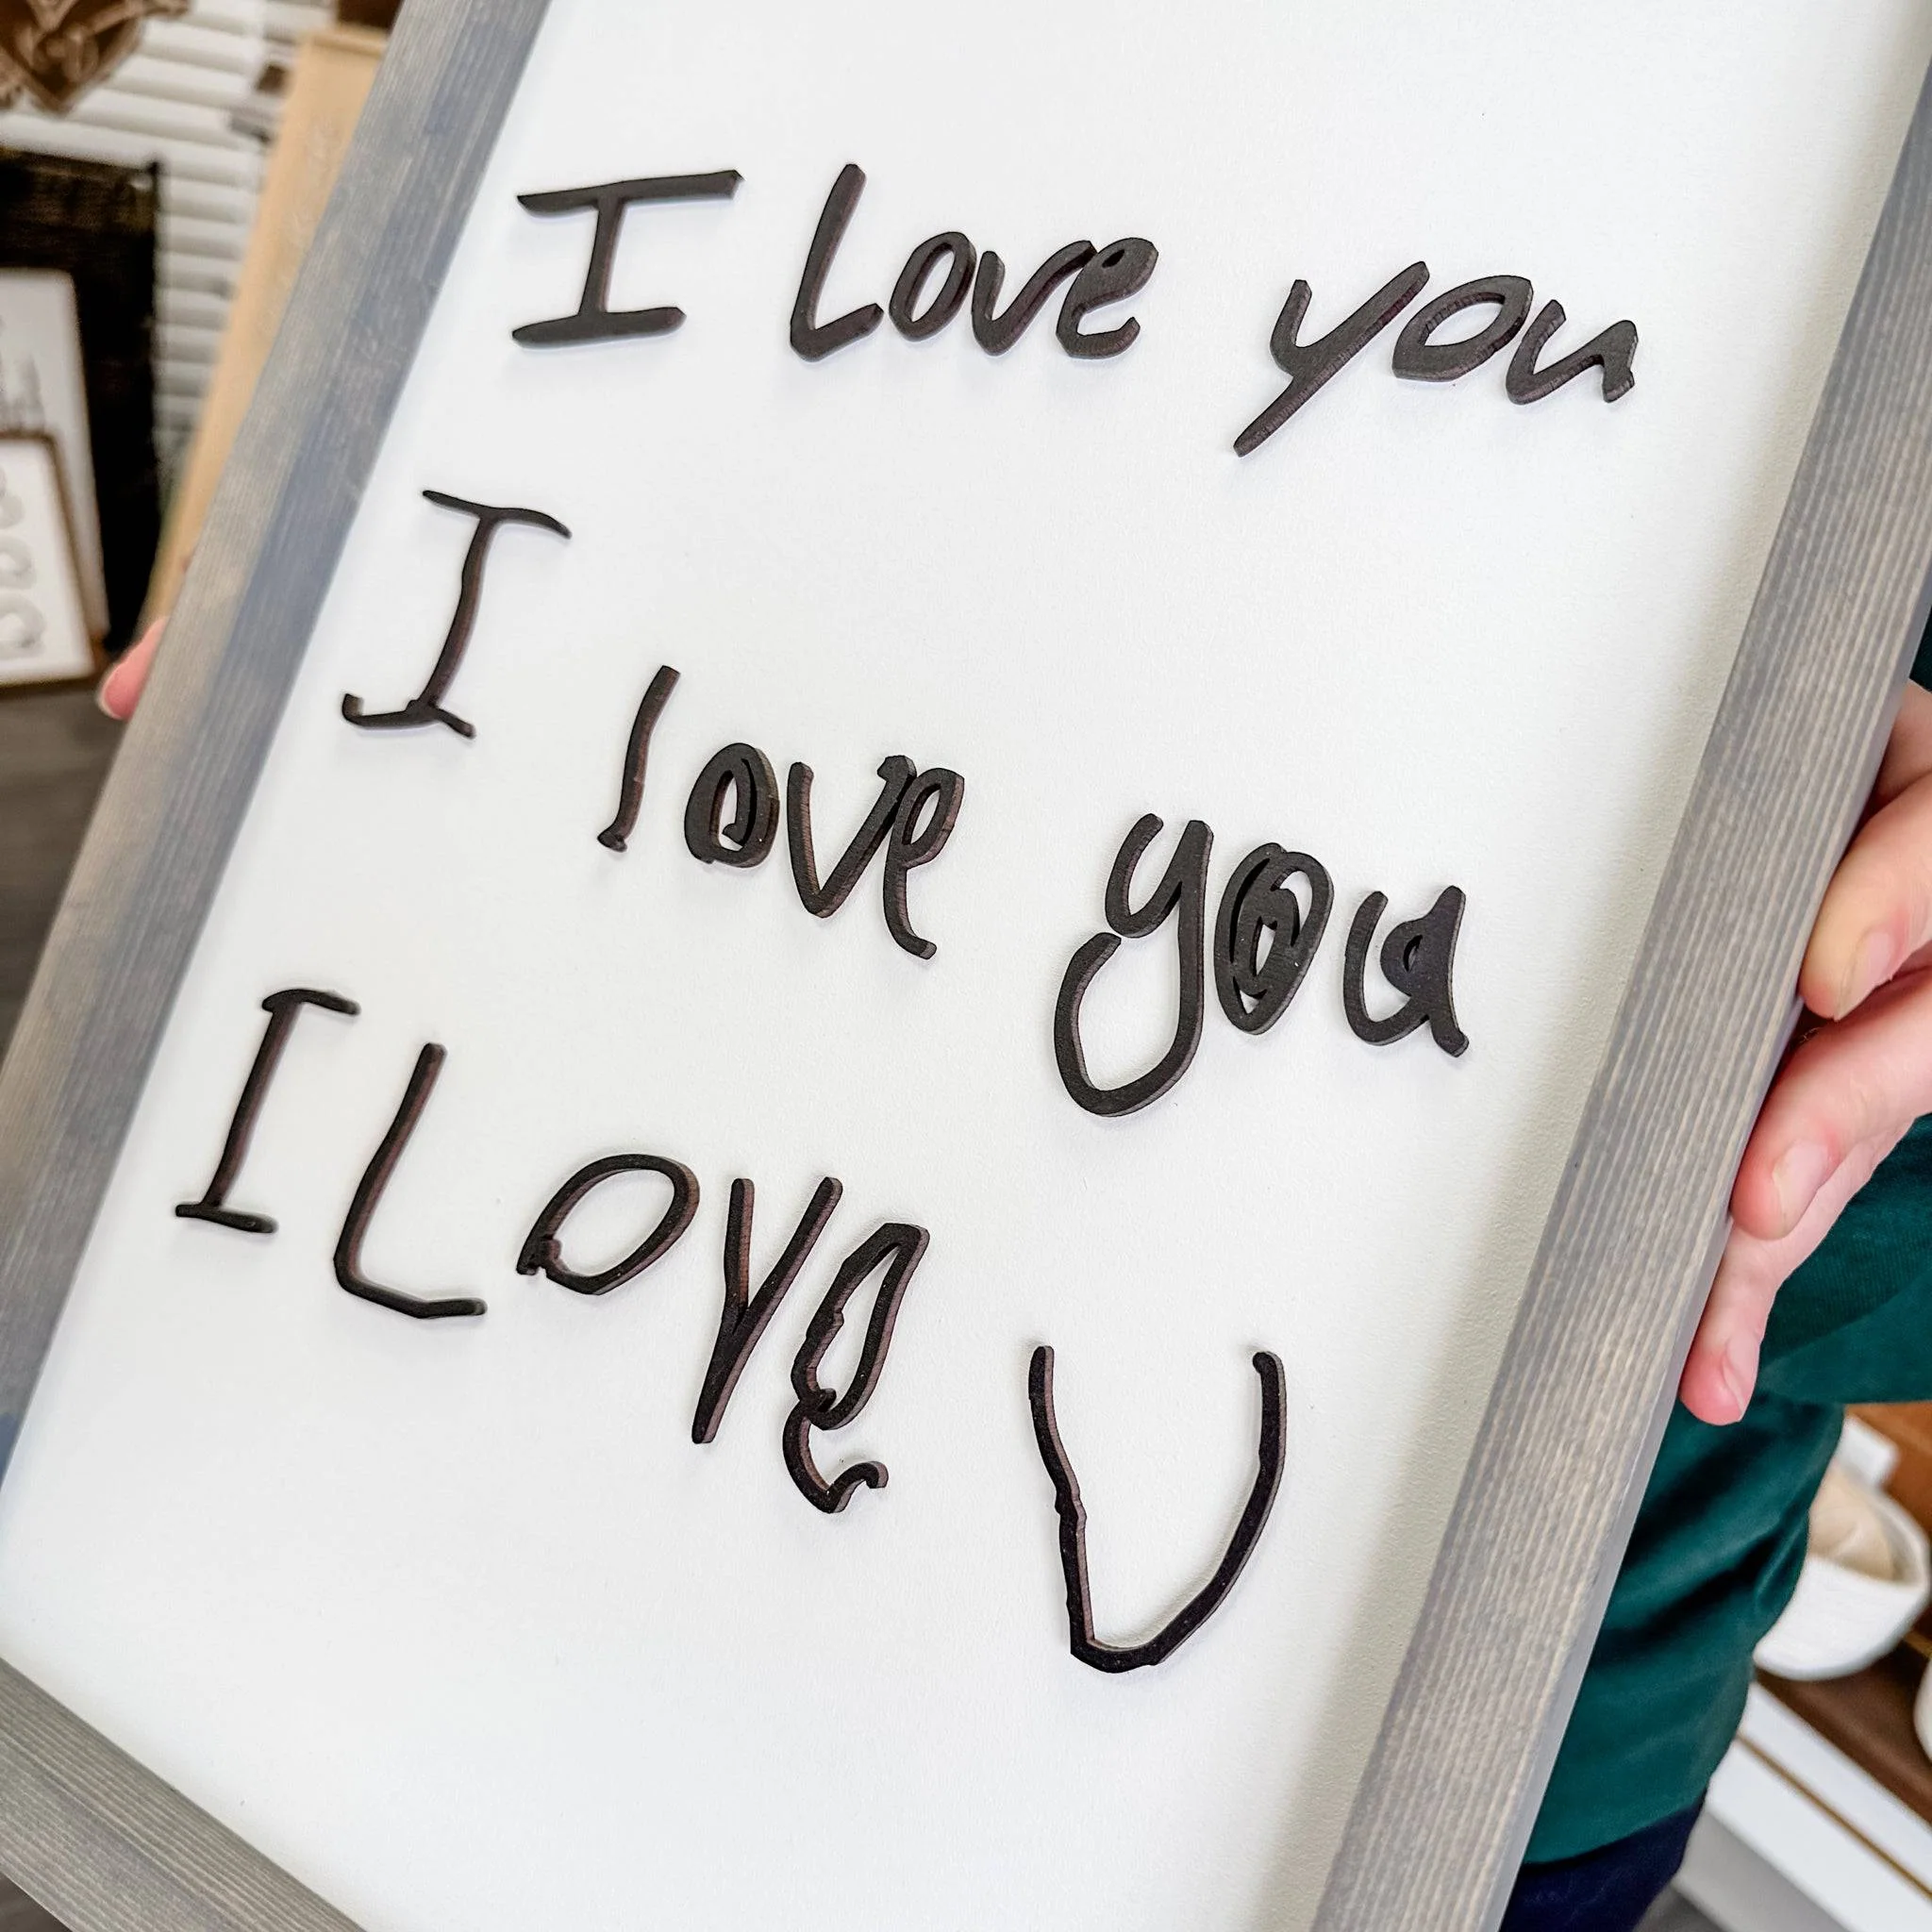 I Love you
I love you
I Love U